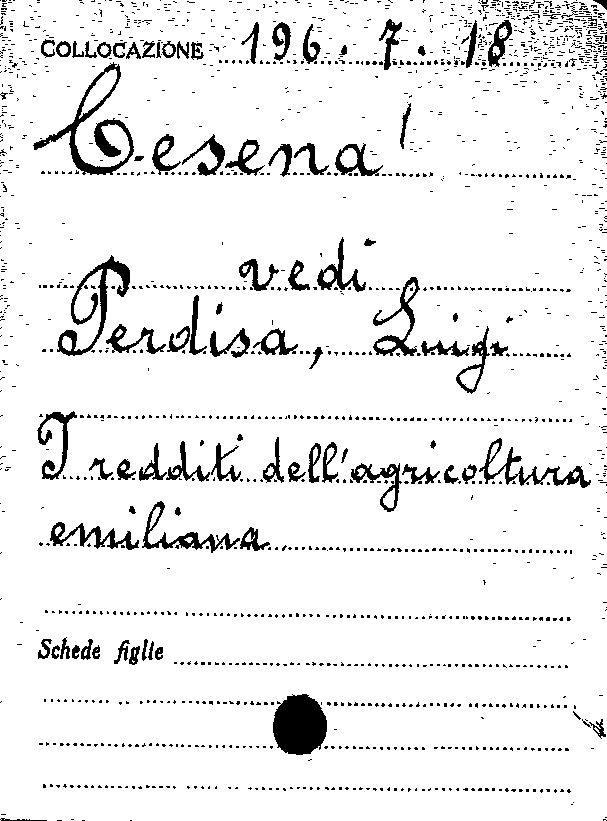 COLLOCAZIONE 196. 7. 18
Cesena
vedi
Perdisa, Luigi
I redditi dell'agricoltura
emiliana
Schede figlie